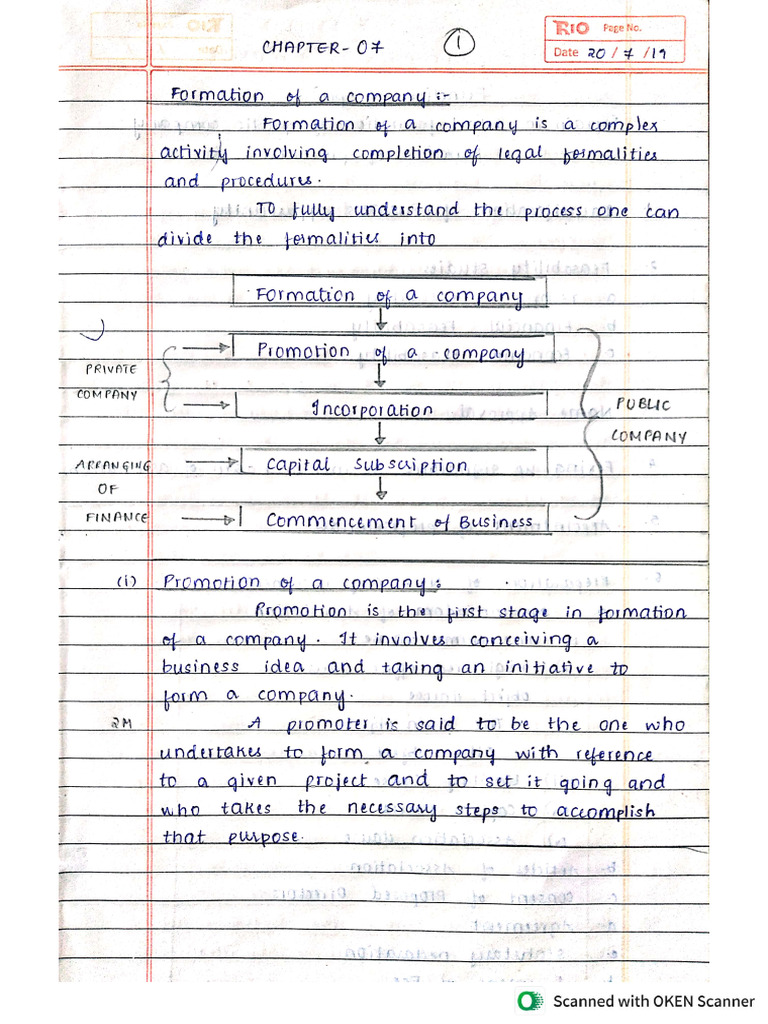 CHAPTER-07
1
TRIO Page No.
Date 20/7/19
Formation of a company :-
Formation of a company is a complex
activity involving completion of legal formalities
and procedures.
TO fully understand the process one can
divide the formalities into
Formation of a company
Promotion of a company
PRIVATE
COMPANY
Incorporation
PUBLIC
COMPANY
ARRANGING
OF
FINANCE
Capital Subscription
Commencement of Business
(i) Promotion of a company :
Promotion is the first stage in formation
of a company. It involves conceiving a
business idea and taking an initiative to
form a company.
2M A promoter is said to be the one who
undertakes to form a company with reference
to a given project and to set it going and
who takes the necessary steps to accomplish
that purpose.
Scanned with OKEN Scanner